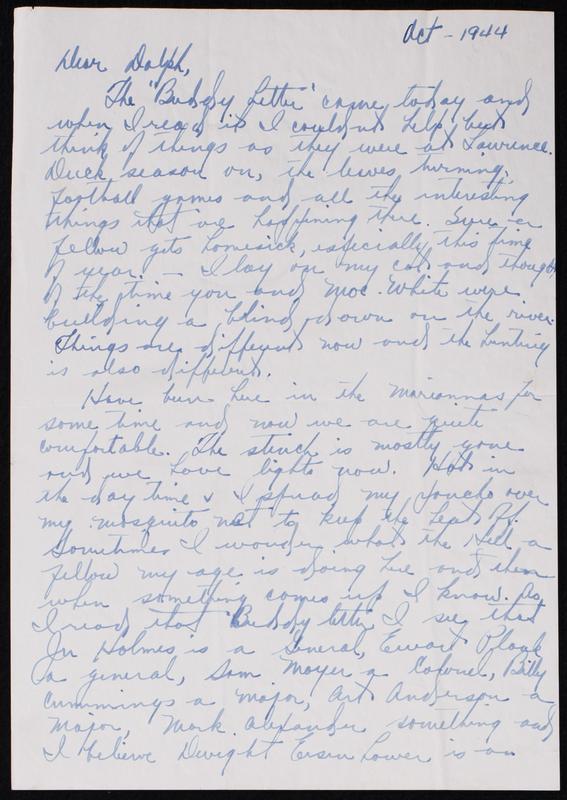 Oct - 1944
Dear Dolph,
The "Buddy Letter" came today and
when I read it I couldn't help but
think of things as they were at Lawrence.
Duck season on, the leaves turning,
football games and all the interesting
things that are happening there. Sure - a
fellow gets homesick, especially this time
of year. - I lay on my cot and thought
of the time you and Moc. White were
building a blind down on the river.
Things are different now and the hunting
is also different.
Have been here in the Mariannas for
some time and now we are quite
comfortable. The stench is mostly gone
and we have lights now. Hot in
the day time & I spread my poncho over
my mosquito net to keep the heat off.
Sometimes I wonder what the Hell a
fellow my age is doing here and then
when something comes up I know. As
I read that Buddy letter I see that
Jr Holmes is a General, Ewart Plank
a general, Sam Moyer a Colonel, Billy
Cummings a major, Art Anderson a
Major, Mark Alexander something and
I believe Dwight Eisenhower is an